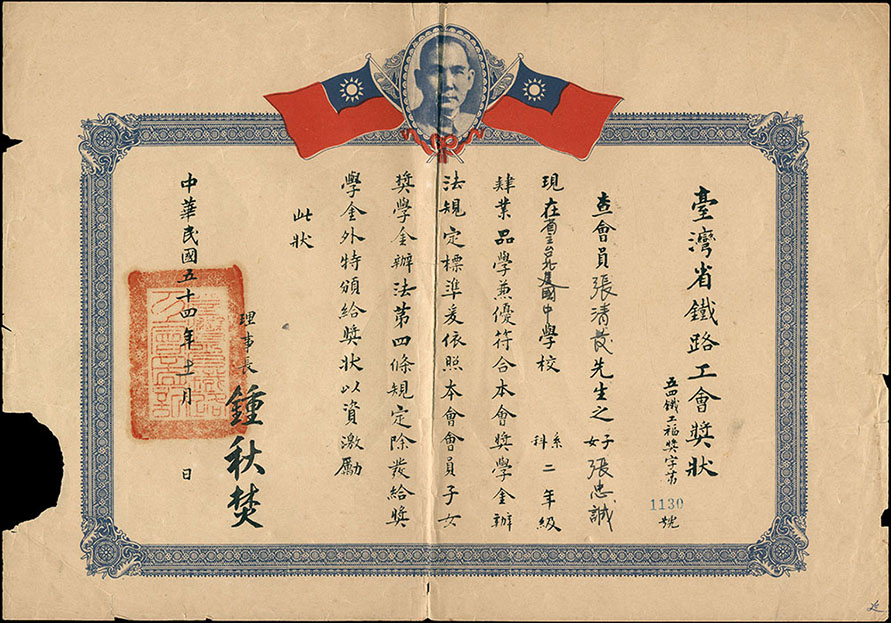 臺灣省鐵路工會獎狀
五四鐵工福獎字第1130號
查會員張清發先生之子女張忠誠
現在省立台北復國中學校系科二年級
肄業品學兼優符合本會獎學金辦
法規定標準爰依照本會會員子女
獎學金辦法第四條規定除發給獎
學金外特頒給獎狀以資激勵
此狀
理事長 鍾秋焚
中華民國五十四年十一月 日